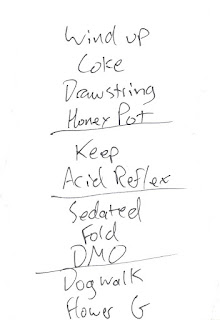 Wind up
Coke
Drawstring
Honey Pot
Keep
Acid Reflex
Sedated
Fold
DMO
Dogwalk
Flower G